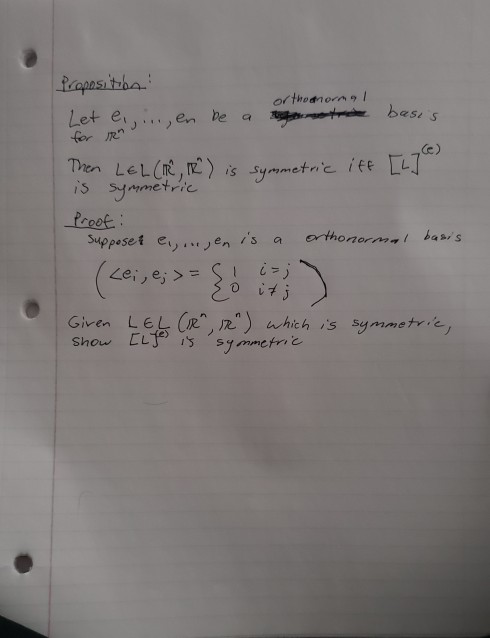 Proposition:
Let e₁, ..., eₙ be a orthonormal basis
for ℝⁿ
Then L∈L(ℝⁿ, ℝⁿ) is symmetric iff [L]⁽ᵉ⁾
is symmetric
Proof:
Suppose e₁, ..., eₙ is a orthonormal basis
(<eᵢ, eⱼ> = { 1 i=j
0 i≠j )
Given L∈L(ℝⁿ, ℝⁿ) which is symmetric,
show [L]⁽ᵉ⁾ is symmetric